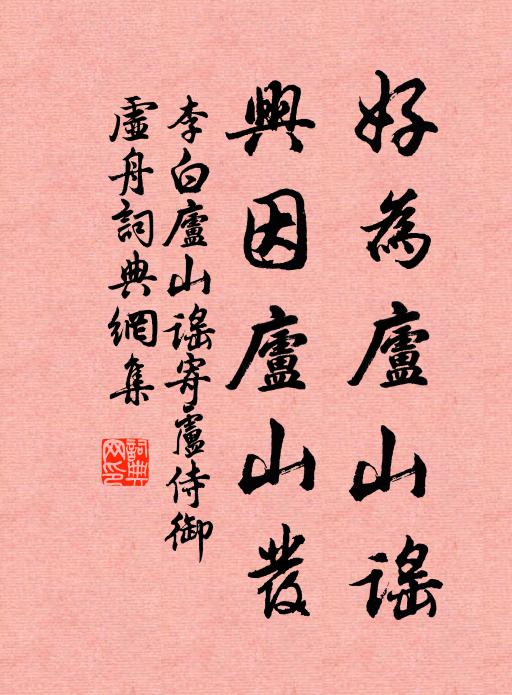 好為廬山謠
興因廬山發
李白廬山謠寄盧侍御
虛舟詞典網集
詞典網印